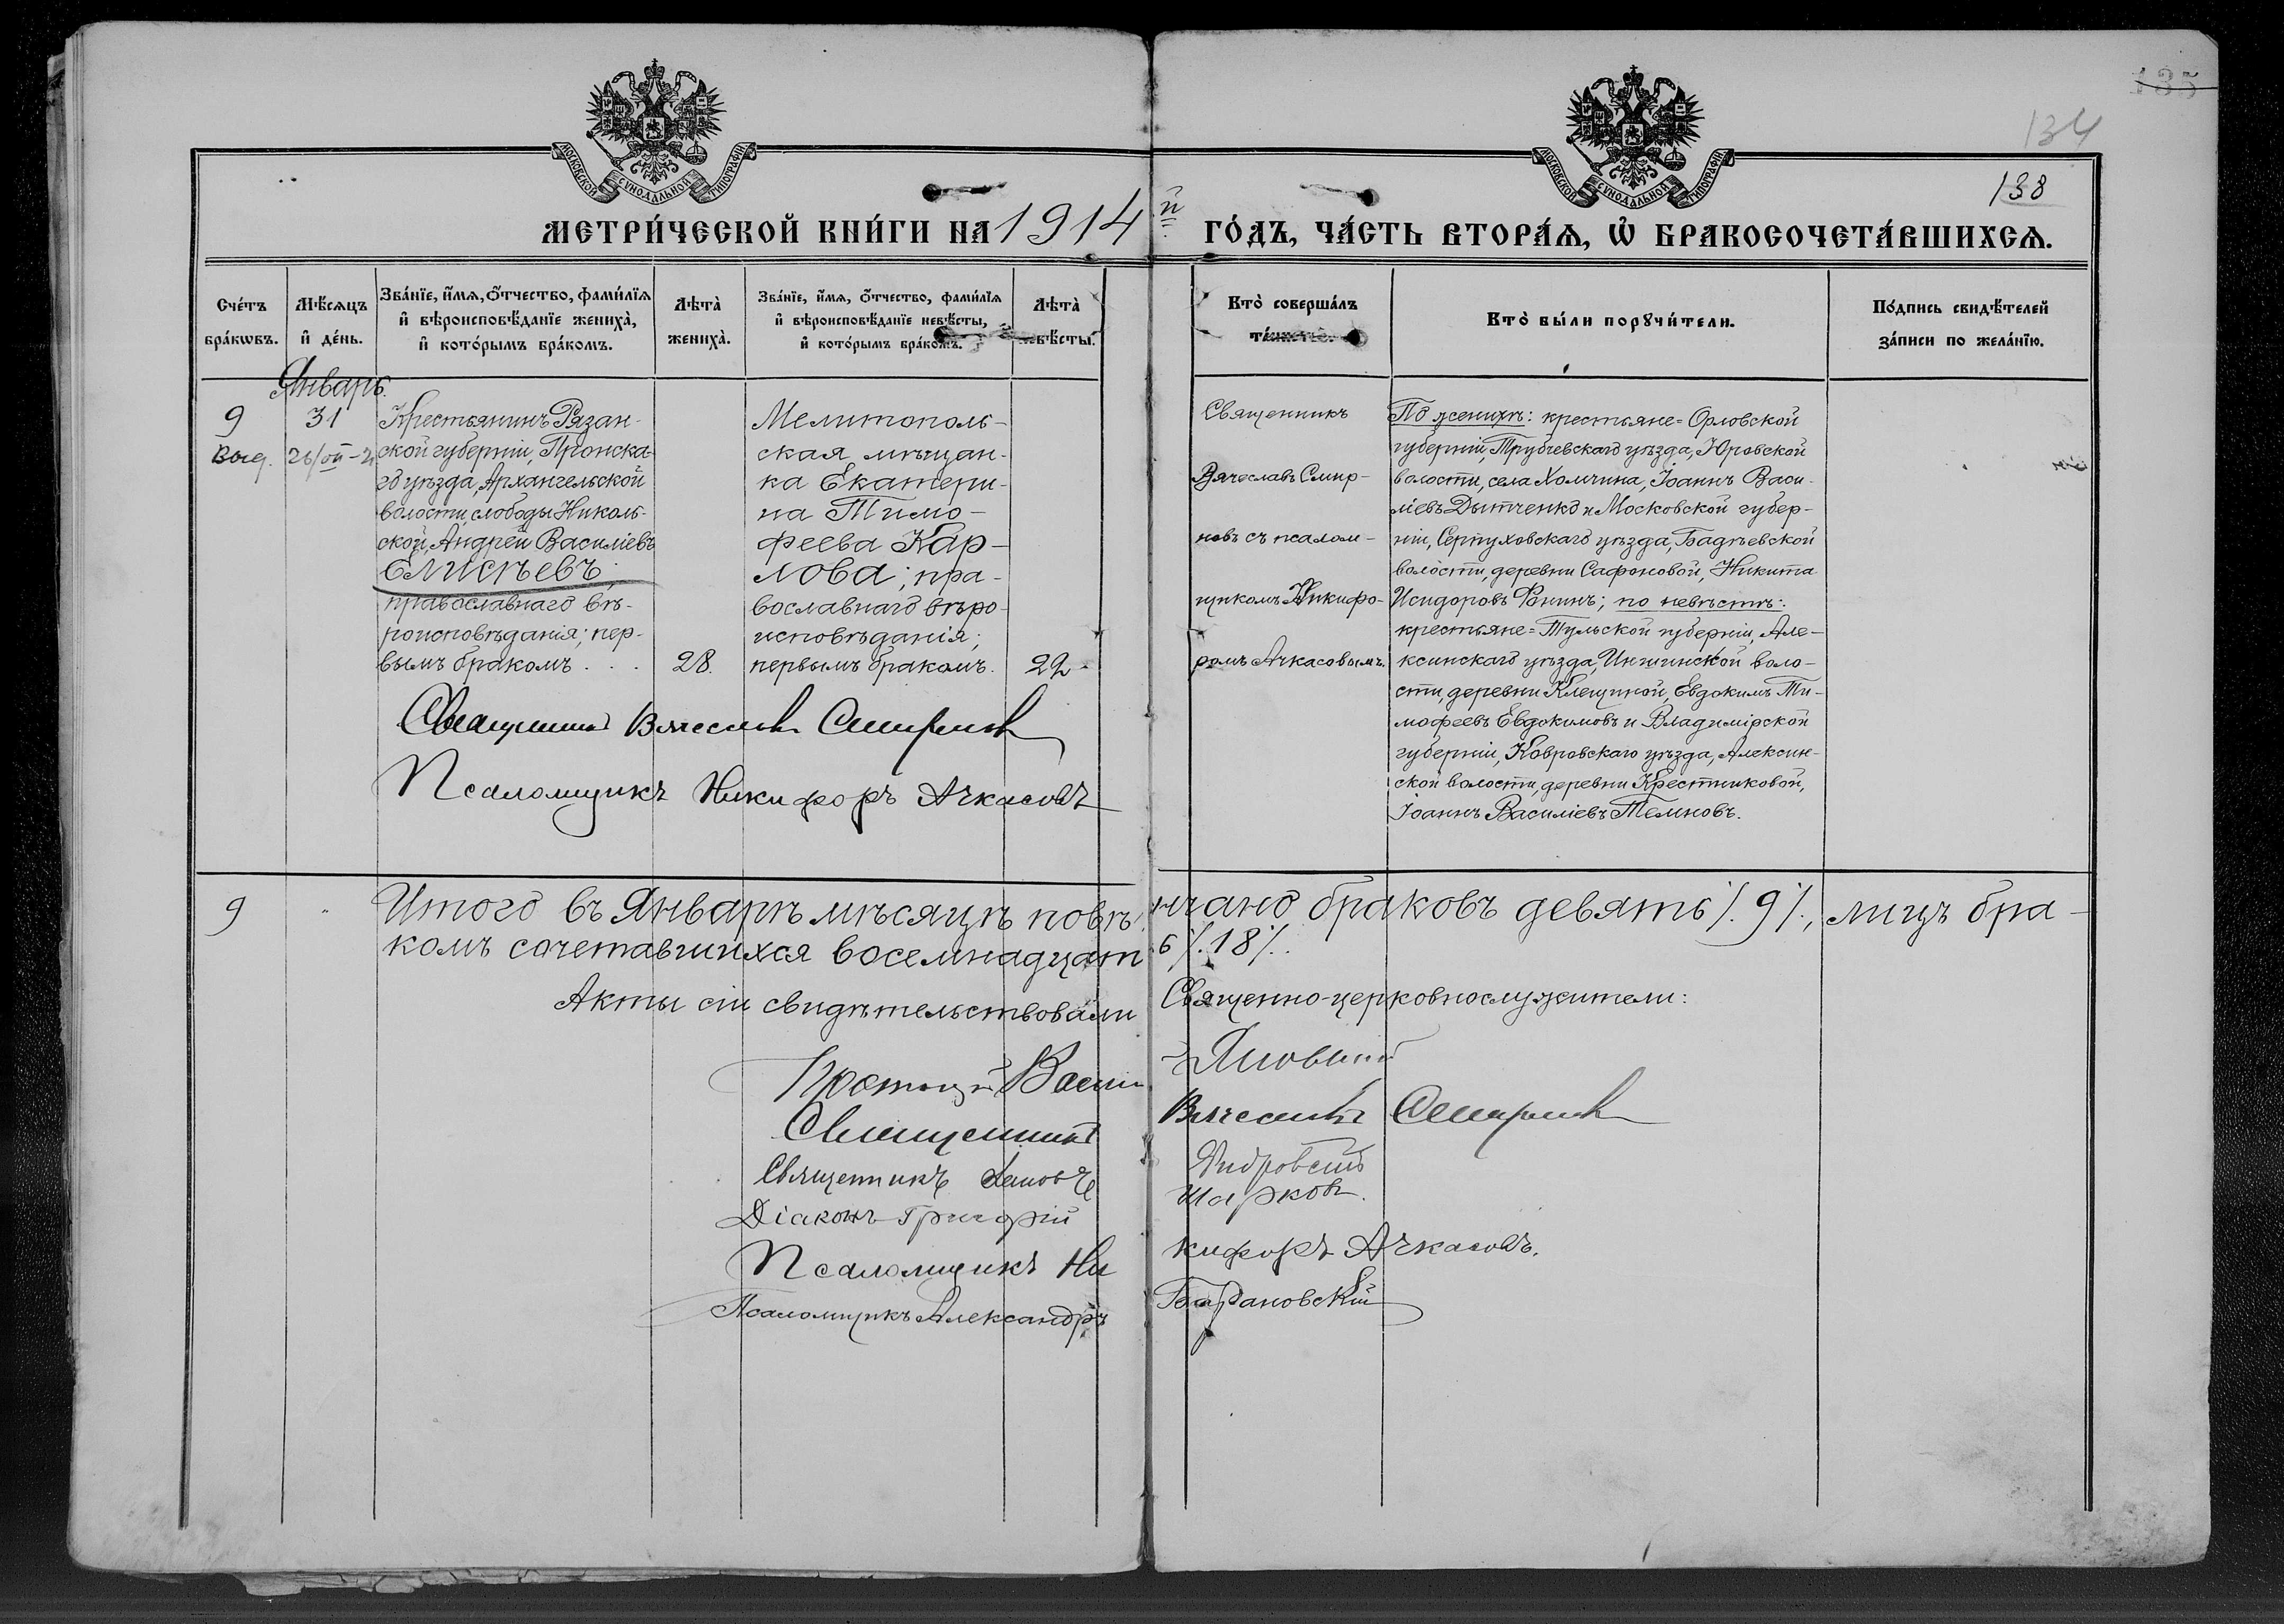 135
134
138
МОСКОВСКОЙ СѴНОДАЛЬНОЙ ТИПОГРАФІИ
МОСКОВСКОЙ СѴНОДАЛЬНОЙ ТИПОГРАФІИ
МЕТРИ́ЧЕСКОЙ КНИ́ГИ НА 1914 й ГО́ДЪ, ЧА́СТЬ ВТОРА́Ѧ, Ѡ҆ БРАКОСОЧЕТА́ВШИХСѦ.
Сче́тъ
бра́кѡвъ.
Мѣ́сѧцъ
и҆ де́нь.
Зва́нїе, и҆́мѧ, ѻ҆́тчество, фами́лїѧ
и҆ вѣроисповѣ́данїе жениха̀,
и҆ кото́рымъ бра́комъ.
Лѣта̀
жениха̀.
Зва́нїе, и҆́мѧ, ѻ҆́тчество, фами́лїѧ
и҆ вѣроисповѣ́данїе невѣ́сты,
и҆ кото́рымъ бра́комъ.
Лѣта̀
невѣ́сты.
Кто̀ соверша́лъ
та́инство.
Кто̀ бы́ли порꙋчи́тели.
По́дпись свидѣ́телей
за́писи по жела́нїю.
Январь.
9
31
Выд.
Крестьянинъ Рязан-
ской губерніи, Пронска-
го уѣзда, Архангельской
волости, слободы Николь-
ской, Андрей Василіевъ
Елисѣевъ;
православнаго вѣ-
роисповѣданія; пер-
вымъ бракомъ . . .
28.
Мелитополь-
ская мѣщан-
ка Екатери-
на Тимо-
феева Кар-
лова; пра-
вославнаго вѣро-
исповѣданія;
первымъ бракомъ.
22
Священникъ
Вячеславъ Смир-
новъ съ псалом-
щикомъ Никифо-
ромъ Ачкасовымъ.
По женихѣ: крестьяне= Орловской
губерніи, Трубчевскаго уѣзда, Юровской
волости, села Холмчина, Іоаннъ Васи-
ліевъ Дытченко и Московской губер-
ніи, Серпуховскаго уѣзда, Бадѣевской
волости, деревни Сафоновой, Никита
Исидоровъ Фанинъ; по невѣстѣ:
крестьяне= Тульской губерніи, Але-
ксинскаго уѣзда, Иншинской воло-
сти, деревни Клещиной, Евдокимъ Ти-
мофеевъ Евдокимовъ и Владимірской
губерніи, Ковровскаго уѣзда, Алексин-
ской волости, деревни Крестниковой,
Іоаннъ Василіевъ Темновъ.
Священникъ Вячеславъ Смирновъ
Псаломщикъ Никифоръ Ачкасовъ
9 Итого въ Январѣ мѣсяцѣ повѣнчано браковъ девять /.9/., лицъ бра-
комъ сочетавшихся восемнадцать /.18/.
Акты сіи свидѣтельствовали Священно-церковнослужители:
Протоіерей Васи
Священникъ Вячеславъ Смирновъ
Священникъ
Діаконъ Григорій Шарковъ.
Псаломщикъ Никифоръ Ачкасовъ.
Псаломщикъ Александръ Барановскій